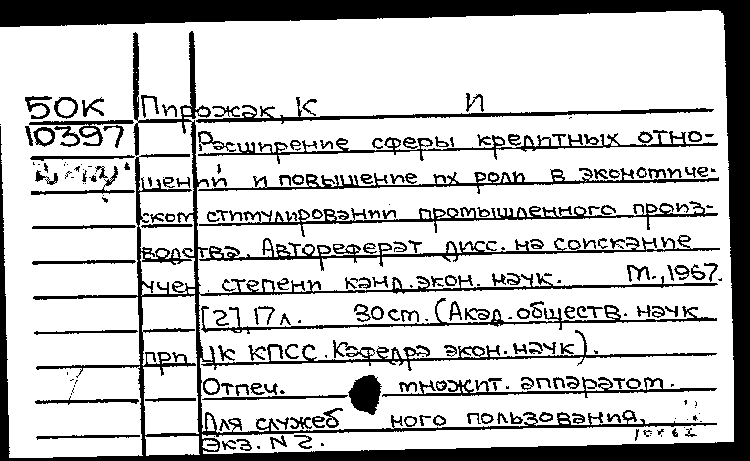 50К Пирожак, К И
10397 Расширение сферы кредитных отно-
шений и повышение их роли в экономиче-
ском стимулировании промышленного произ-
водства. Автореферат дисс. на соискание
учен. степени канд. экон. наук. М., 1967.
[2], 17 л. 30 см. (Акад. обществ. наук
при ЦК КПСС. Кафедра экон. наук).
Отпеч. множит. аппаратом.
Для служебного пользования.
Экз. N 2.